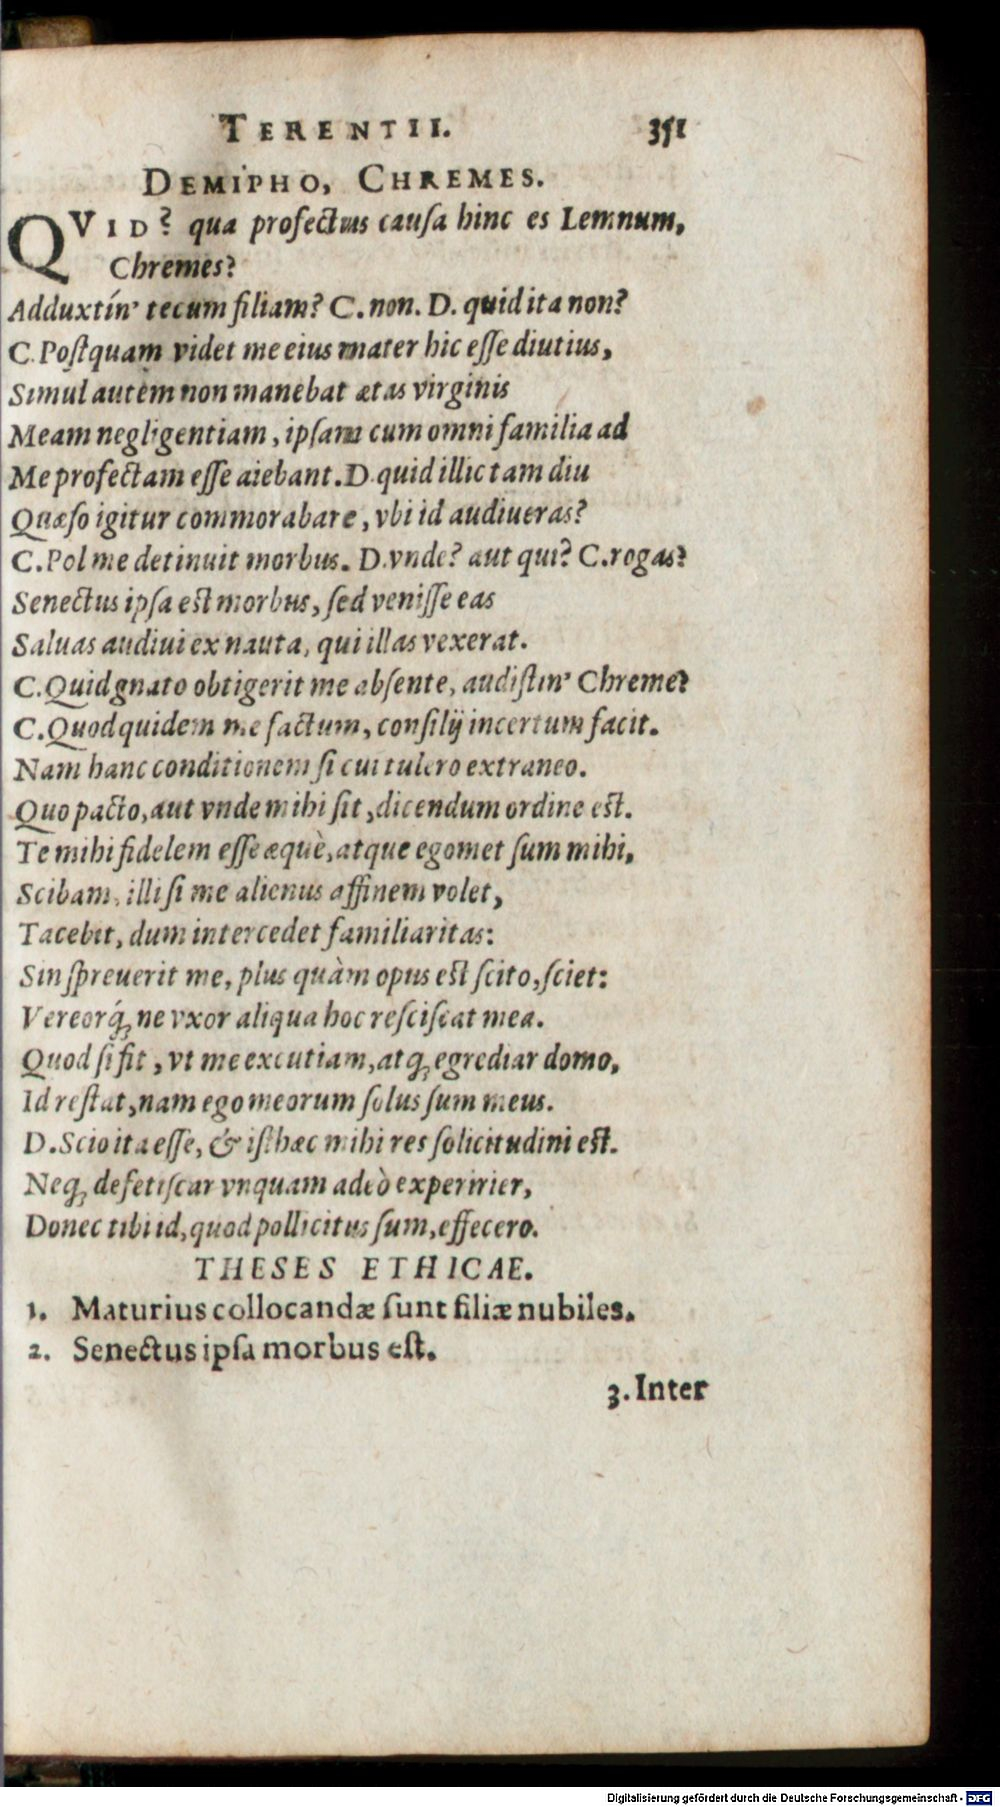 TERENTII. 351
DEMIPHO, CHREMES.
QVID? qua profectus causa hinc es Lemnum,
Chremes?
Adduxtín' tecum filiam? C. non. D. quid ita non?
C. Postquam videt me eius mater hic esse diutius,
Simul autèm non manebat ætas virginis
Meam negligentiam, ipsam cum omni familia ad
Me profectam esse aiebant. D. quid illic tam diu
Quæso igitur commorabare, vbi id audiueras?
C. Pol me detinuit morbus. D. vnde? aut qui? C. rogas?
Senectus ipsa est morbus, sed venisse eas
Saluas audiui ex nauta, qui illas vexerat.
C. Quid gnato obtigerit me absente, audistin' Chreme?
C. Quod quidem me factum, consilij incertum facit.
Nam hanc conditionem si cui tulero extraneo.
Quo pacto, aut vnde mihi sit, dicendum ordine est.
Te mihi fidelem esse æquè, atque egomet sum mihi,
Scibam, illi si me alienus affinem volet,
Tacebit, dum intercedet familiaritas:
Sin spreuerit me, plus quàm opus est scito, sciet:
Vereorq́; ne vxor aliqua hoc resciscat mea.
Quod si fit, vt me excutiam, atq; egrediar domo,
Id restat, nam ego meorum solus sum meus.
D. Scio ita esse, & isthæc mihi res solicitudini est.
Neq; defetiscar vnquam adeò experirier,
Donec tibi id, quod pollicitus sum, effecero.
THESES ETHICAE.
1. Maturius collocandæ sunt filiæ nubiles.
2. Senectus ipsa morbus est.
3. Inter
Digitalisierung gefördert durch die Deutsche Forschungsgemeinschaft - DFG